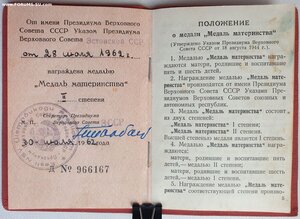 FORUMS-SU.COM
От имени Президиума Верховного
Совета СССР Указом Президиума
Верховного Совета Эстонской ССР
от 28 июля 1962 г.
награждена медалью
„Медаль материнства"
II степени
Секретарь Президиума
Верховного Совета ССР
30 июля 1962 года
Д № 966167
ПОЛОЖЕНИЕ
о медали „Медаль материнства"
(Утверждено Указом Президиума Верховного
Совета СССР от 18 августа 1944 г.)
1. Медалью „Медаль материнства" награждаются
матери, родившие и воспитавшие
пять и шесть детей.
2. Награждение медалью „Медаль материнства"
производится от имени Президиума
Верховного Совета СССР Указами Президиумов
Верховных Советов союзных и
автономных республик.
3. „Медаль материнства" состоит из двух
степеней:
„Медаль материнства" I степени,
„Медаль материнства" II степени.
Высшей степенью медали является I степень.
4. Награждаются:
матери, родившие и воспитавшие пять
детей, — медалью II степени;
матери, родившие и воспитавшие шесть
детей, — медалью I степени.
5. Награждение медалью „Медаль материнства"
соответствующей степени производится